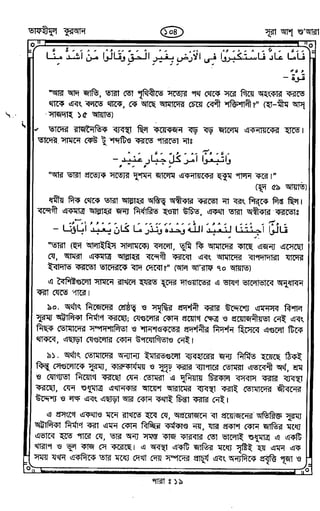 তাফহীমুল কুরআন
১০৪
সূরা আশ্ শু'আরা
فَأَمَّا عَادٌ فَاسْتَكْبَرُوا فِي الْأَرْضِ بِغَيْرِ الْحَقِّ وَقَالُوا مَنْ أَشَدُّ مِنَّا
قُوَّةً -
"আর আদ জাতি, তারা তো পৃথিবীতে সত্যের পথ থেকে সরে গিয়ে অহংকার করতে
থাকে এবং বলতে থাকে, কে আছে আমাদের চেয়ে বেশী শক্তিশালী?" (হা-মীম আস্
সাজদাহ ১৫ আয়াত)
তাদের রাজনৈতিক ব্যবস্থা ছিল কয়েকজন বড় বড় জালেম একনায়কের হাতে।
তাদের সামনে কেউ টু শব্দটিও করতে পারতো নাঃ
وَاتَّبَعُوا أَمْرَ كُلِّ جَبَّارٍ عَنِيدٍ -
"আর তারা প্রত্যেক সত্যের দুশমন জালেম একনায়কের হুকুম পালন করে।"
(হূদ ৫৯ আয়াত)
ধর্মীয় দিক থেকে তারা আল্লাহর অস্তিত্ব অস্বীকার করতো না বরং শিরকে লিপ্ত ছিল।
বন্দেগী একমাত্র আল্লাহর জন্য নির্ধারিত হওয়া উচিত, একথা তারা অস্বীকার করতোঃ
قَالُوا أَجِئْتَنَا لِنَعْبُدَ اللَّهَ وَحْدَهُ وَنَذَرَ مَا كَانَ يَعْبُدُ آبَاؤُنَا -
"তারা (হূদ আলাইহিস সালামকে) বললো, তুমি কি আমাদের কাছে এজন্য এসেছো
যে, আমরা একমাত্র আল্লাহর বন্দেগী করবো এবং আমাদের বাপদাদারা যাদের
ইবাদাত করতো তাদেরকে বাদ দেবো?" (আল আ'রাফ ৭০ আয়াত)
এ বৈশিষ্ট্যগুলো সামনে রাখলে হযরত হূদের দাওয়াতের এ ভাষণ ভালোভাবে অনুধাবন
করা যেতে পারে।
৯০. অর্থাৎ নিজেদের শ্রেষ্ঠত্ব ও সমৃদ্ধির প্রদর্শনী করার উদ্দেশ্যে এমনসব বিশাল
সুরম্য অট্টালিকা নির্মাণ করছো; যেগুলোর কোন প্রয়োগ ক্ষেত্র ও প্রয়োজনীয়তা নেই এবং
নিছক তোমাদের সম্পদশালিতা ও শানশওকতের প্রদর্শনীর নিদর্শন হিসেবে এগুলো টিকে
থাকবে, এছাড়া যেগুলোর কোন উপযোগিতাও নেই।
৯১. অর্থাৎ তোমাদের অন্যান্য ইমারতগুলো ব্যবহারের জন্য নির্মিত হয়েছে ঠিকই
কিন্তু সেগুলোকে সুরম্য, কারুকার্যময় ও সুদৃঢ় করার ব্যাপারে তোমরা এতবেশী অর্থ, শ্রম
ও যোগ্যতা নিয়োগ করছো যেন তোমরা এ দুনিয়ায় চিরকাল বসবাস করার ব্যবস্থা
করছো, যেন শুধুমাত্র এখানকার আয়েশ আরামের ব্যবস্থা করাই তোমাদের জীবনের
উদ্দেশ্য ও লক্ষ্য এবং এছাড়া আর কোন কথাই চিন্তা করার নেই।
এ প্রসংগে একথাও মনে রাখতে হবে যে, অপ্রয়োজনে বা প্রয়োজনের অতিরিক্ত সুরম্য
অট্টালিকা নির্মাণ করা এমন কোন বিচ্ছিন্ন কর্মকাণ্ড নয়, যার প্রকাশ কোন জাতির মধ্যে
এভাবে হতে পারে যে, তার অন্য সমস্ত কাজ কারবার তো ভালোই শুধুমাত্র এ একটি
খারাপ ও ভুল কাজ সে করেছে। এ অবস্থা একটি জাতির মধ্যে সৃষ্টিই হয় এমন এক
সময় যখন একদিকে তার মধ্যে দেখা দেয় সম্পদের প্রাচুর্য এবং অন্যদিকে প্রবৃত্তি পূজা ও
পারা : ১৯